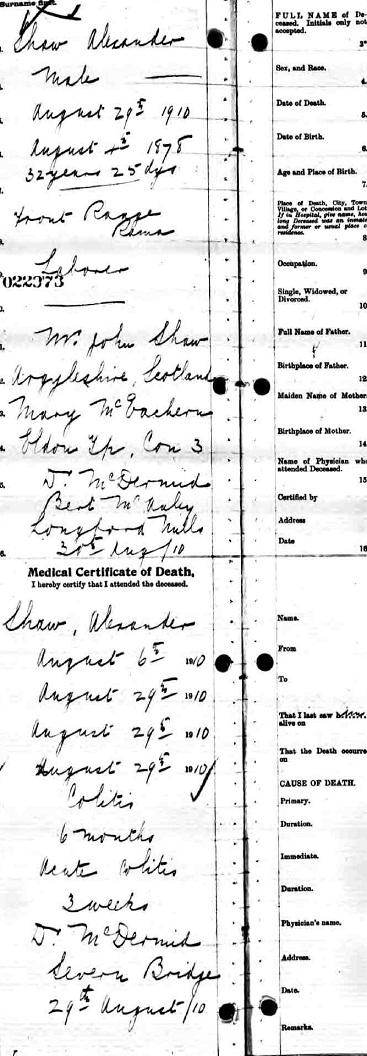 Surname first.
Shaw Alexander
Male
August 29th 1910
August 4th 1878
32 years 25 dys
Front Range
Rama
Laborer
022373
Mr. John Shaw
Argyleshire, Scotland
Mary McEachern
Eldon Tp, Con 3
Dr. McDermid
Bert McAuley
Longford Mills
30th Aug/10
Medical Certificate of Death.
I hereby certify that I attended the deceased.
Shaw, Alexander
August 6th 1910
August 29th 1910
August 29th 1910
August 29th 1910
Colitis
6 months
Acute Colitis
3 weeks
Dr. McDermid
Severn Bridge
29th August/10
FULL NAME of De-
ceased. Initials only not
accepted.
3
Sex, and Race.
4.
Date of Death.
5.
Date of Birth.
6.
Age and Place of Birth.
7.
Place of Death, City, Town
Village, or Concession and Lot
If in Hospital, give name, how
long Deceased was an inmate
and former or usual place of
residence.
8
Occupation.
9
Single, Widowed, or
Divorced.
10
Full Name of Father.
11
Birthplace of Father.
12
Maiden Name of Mother
13
Birthplace of Mother.
14
Name of Physician who
attended Deceased.
15
Certified by
Address
Date
16
Name.
From
To
That I last saw
alive on
That the Death occurre
on
CAUSE OF DEATH.
Primary.
Duration.
Immediate.
Duration.
Physician's name.
Address.
Date.
Remarks.